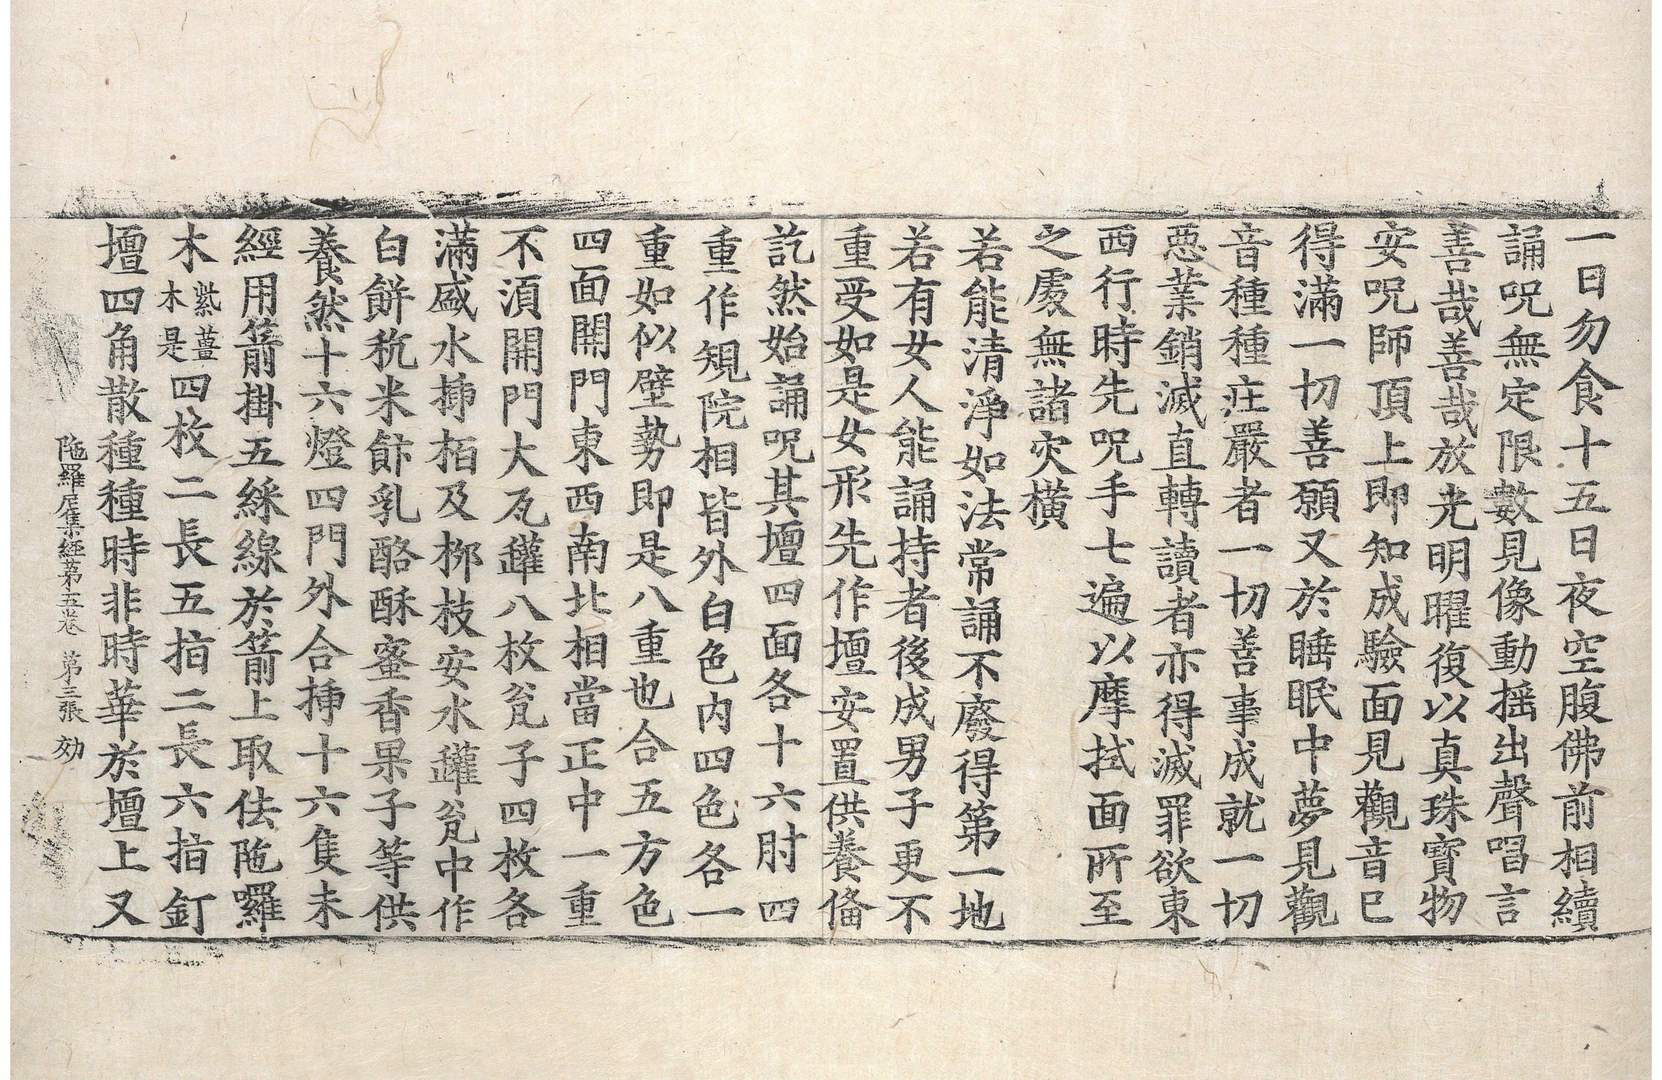 一日勿食十五日夜空腹佛前相續
誦呪無定限數見像動搖出聲唱言
善哉善哉放光明曜復以真珠寶物
安呪師頂上即知成驗面見觀音已
得滿一切善願又於睡眠中夢見觀
音種種莊嚴者一切善事成就一切
惡業銷滅直轉讀者亦得滅罪欲東
西行時先呪手七遍以摩拭面所至
之處無諸灾橫
若能清淨如法常誦不廢得第一地
若有女人能誦持者後成男子更不
重受如是女形先作壇安置供養俻
訖然始誦呪其壇四面各十六肘四
重作規院相皆外白色內四色各一
重如似壁勢即是八重也合五方色
四面開門東西南北相當正中一重
不須開門大瓦罐八枚瓮子四枚各
滿盛水揷栢及柳枝安水罐瓮中作
白餅秔米飰乳酪酥蜜香果子等供
養然十六燈四門外合揷十六隻未
經用箭掛五綵線於箭上取佉陁囉
木紫薑木是四枚二長五指二長六指釘
壇四角散種種時非時華於壇上又
陁羅尼集經第五卷 第三張 効